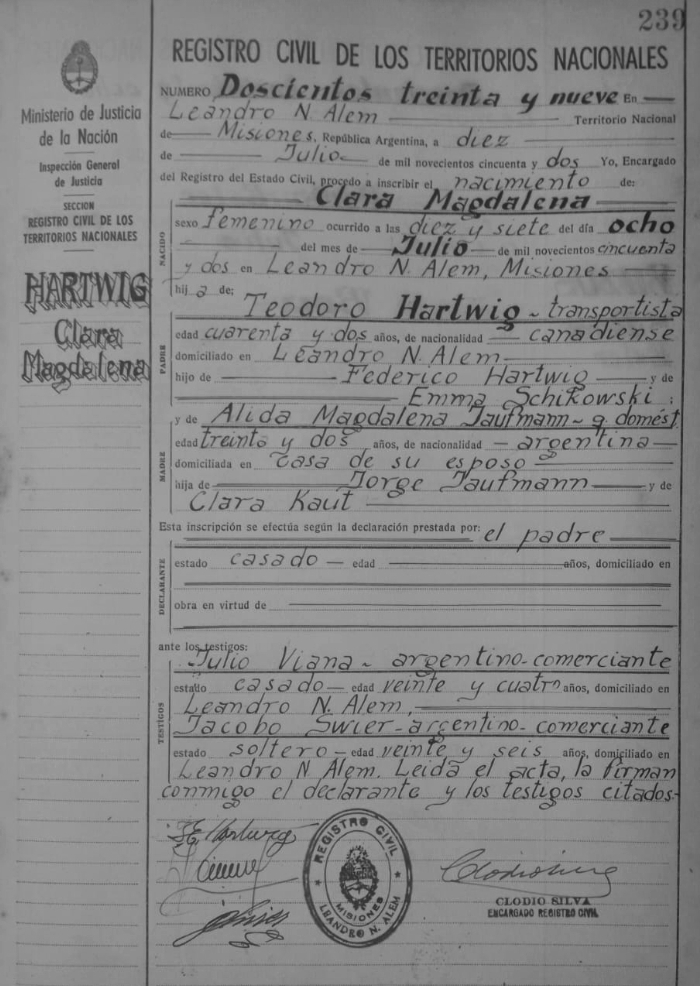 239
Ministerio de Justicia
de la Nación
Inspección General
de Justicia
SECCION
REGISTRO CIVIL DE LOS
TERRITORIOS NACIONALES
HARTWIG
Clara
Magdalena
REGISTRO CIVIL DE LOS TERRITORIOS NACIONALES
NUMERO Doscientos treinta y nueve En
Leandro N. Alem Territorio Nacional
de Misiones, República Argentina, a diez
de Julio de mil novecientos cincuenta y dos Yo, Encargado
del Registro del Estado Civil, procedo a inscribir el nacimiento de:
Clara Magdalena
NACIDO
sexo femenino ocurrido a las diez y siete del día ocho
del mes de Julio de mil novecientos cincuenta
y dos en Leandro N. Alem, Misiones
hij a de:
PADRE
Teodoro Hartwig - transportista
edad cuarenta y dos años, de nacionalidad canadiense
domiciliado en Leandro N. Alem
hijo de Federico Hartwig y de
Emma Schikowski;
MADRE
y de Alida Magdalena Jaufmann - q. domést.
edad treinta y dos años, de nacionalidad argentina
domiciliada en casa de su esposo
hija de Jorge Jaufmann y de
Clara Kaut
Esta inscripción se efectúa según la declaración prestada por: el padre
DECLARANTE
estado casado edad años, domiciliado en
obra en virtud de
ante los testigos:
TESTIGOS
Julio Viana - argentino - comerciante
estado casado edad veinte y cuatro años, domiciliado en
Leandro N. Alem,
Jacobo Swier - argentino - comerciante
estado soltero edad veinte y seis años, domiciliado en
Leandro N. Alem. Leida el acta, la firman
conmigo el declarante y los testigos citados.
REGISTRO CIVIL
MISIONES
LEANDRO N. ALEM
CLODIO SILVA
ENCARGADO REGISTRO CIVIL